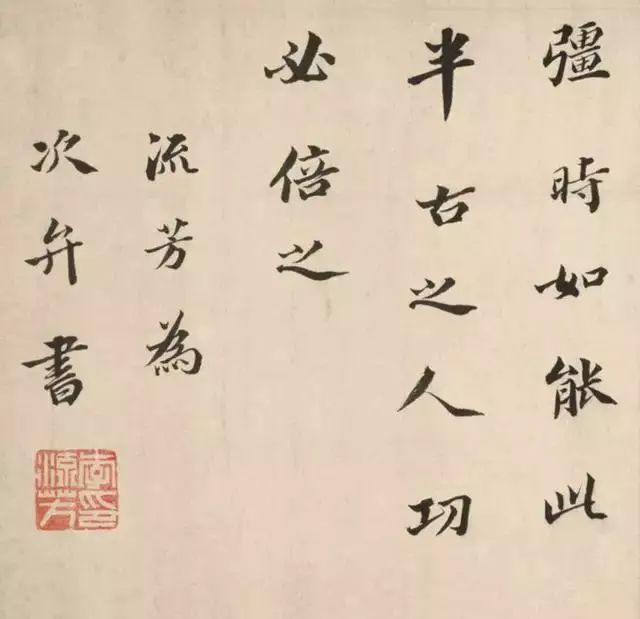 彊時如能此
半古之人功
必倍之
流芳為
次弁書
李流芳印